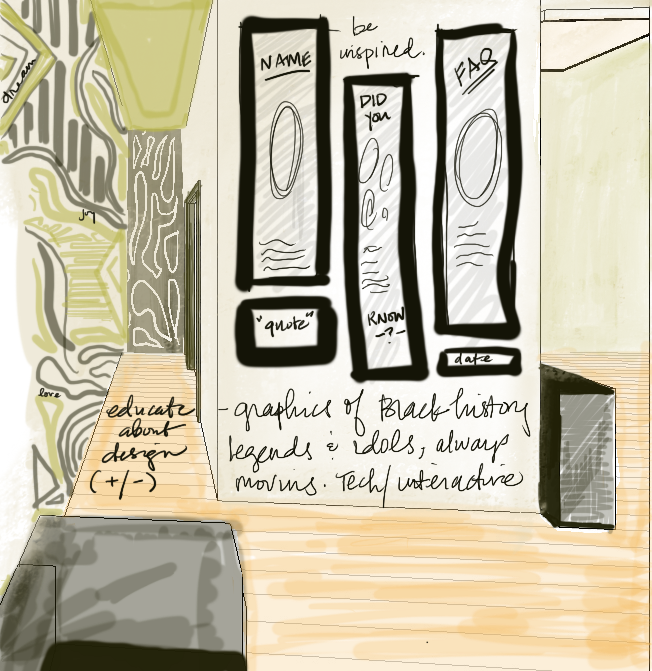 be
inspired.
NAME
FAQ
DID
you
KNOW
-?-
"quote"
date
dream
joy
love
educate
about
design
(+/-)
- graphics of Black history
legends & idols, always
moving. Tech/interactive